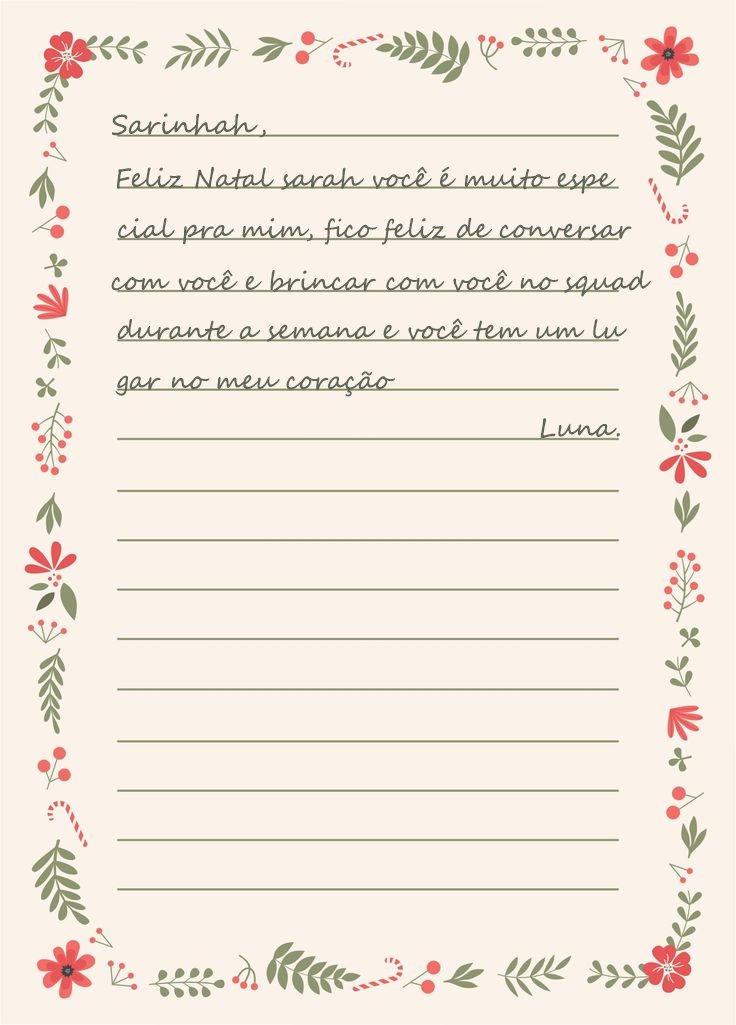 Sarinhah,
Feliz Natal sarah você é muito espe
cial pra mim, fico feliz de conversar
com você e brincar com você no squad
durante a semana e você tem um lu
gar no meu coração
Luna.